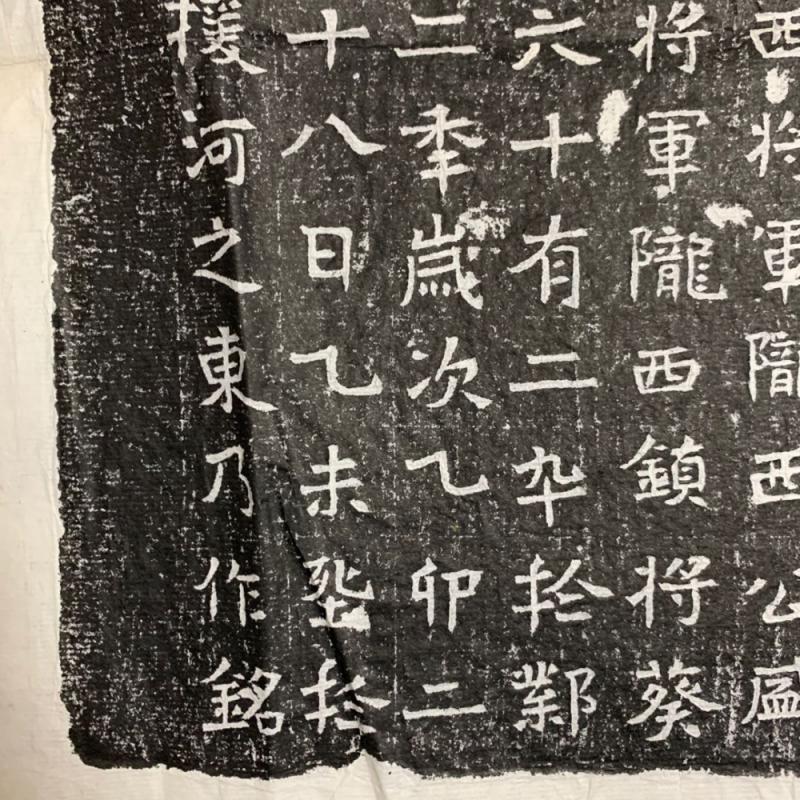 西将軍隴西公盛
将軍隴西鎮将葵
六十有二卆於鄴
二秊歲次乙卯二
十八日乙未於
河之東乃作銘